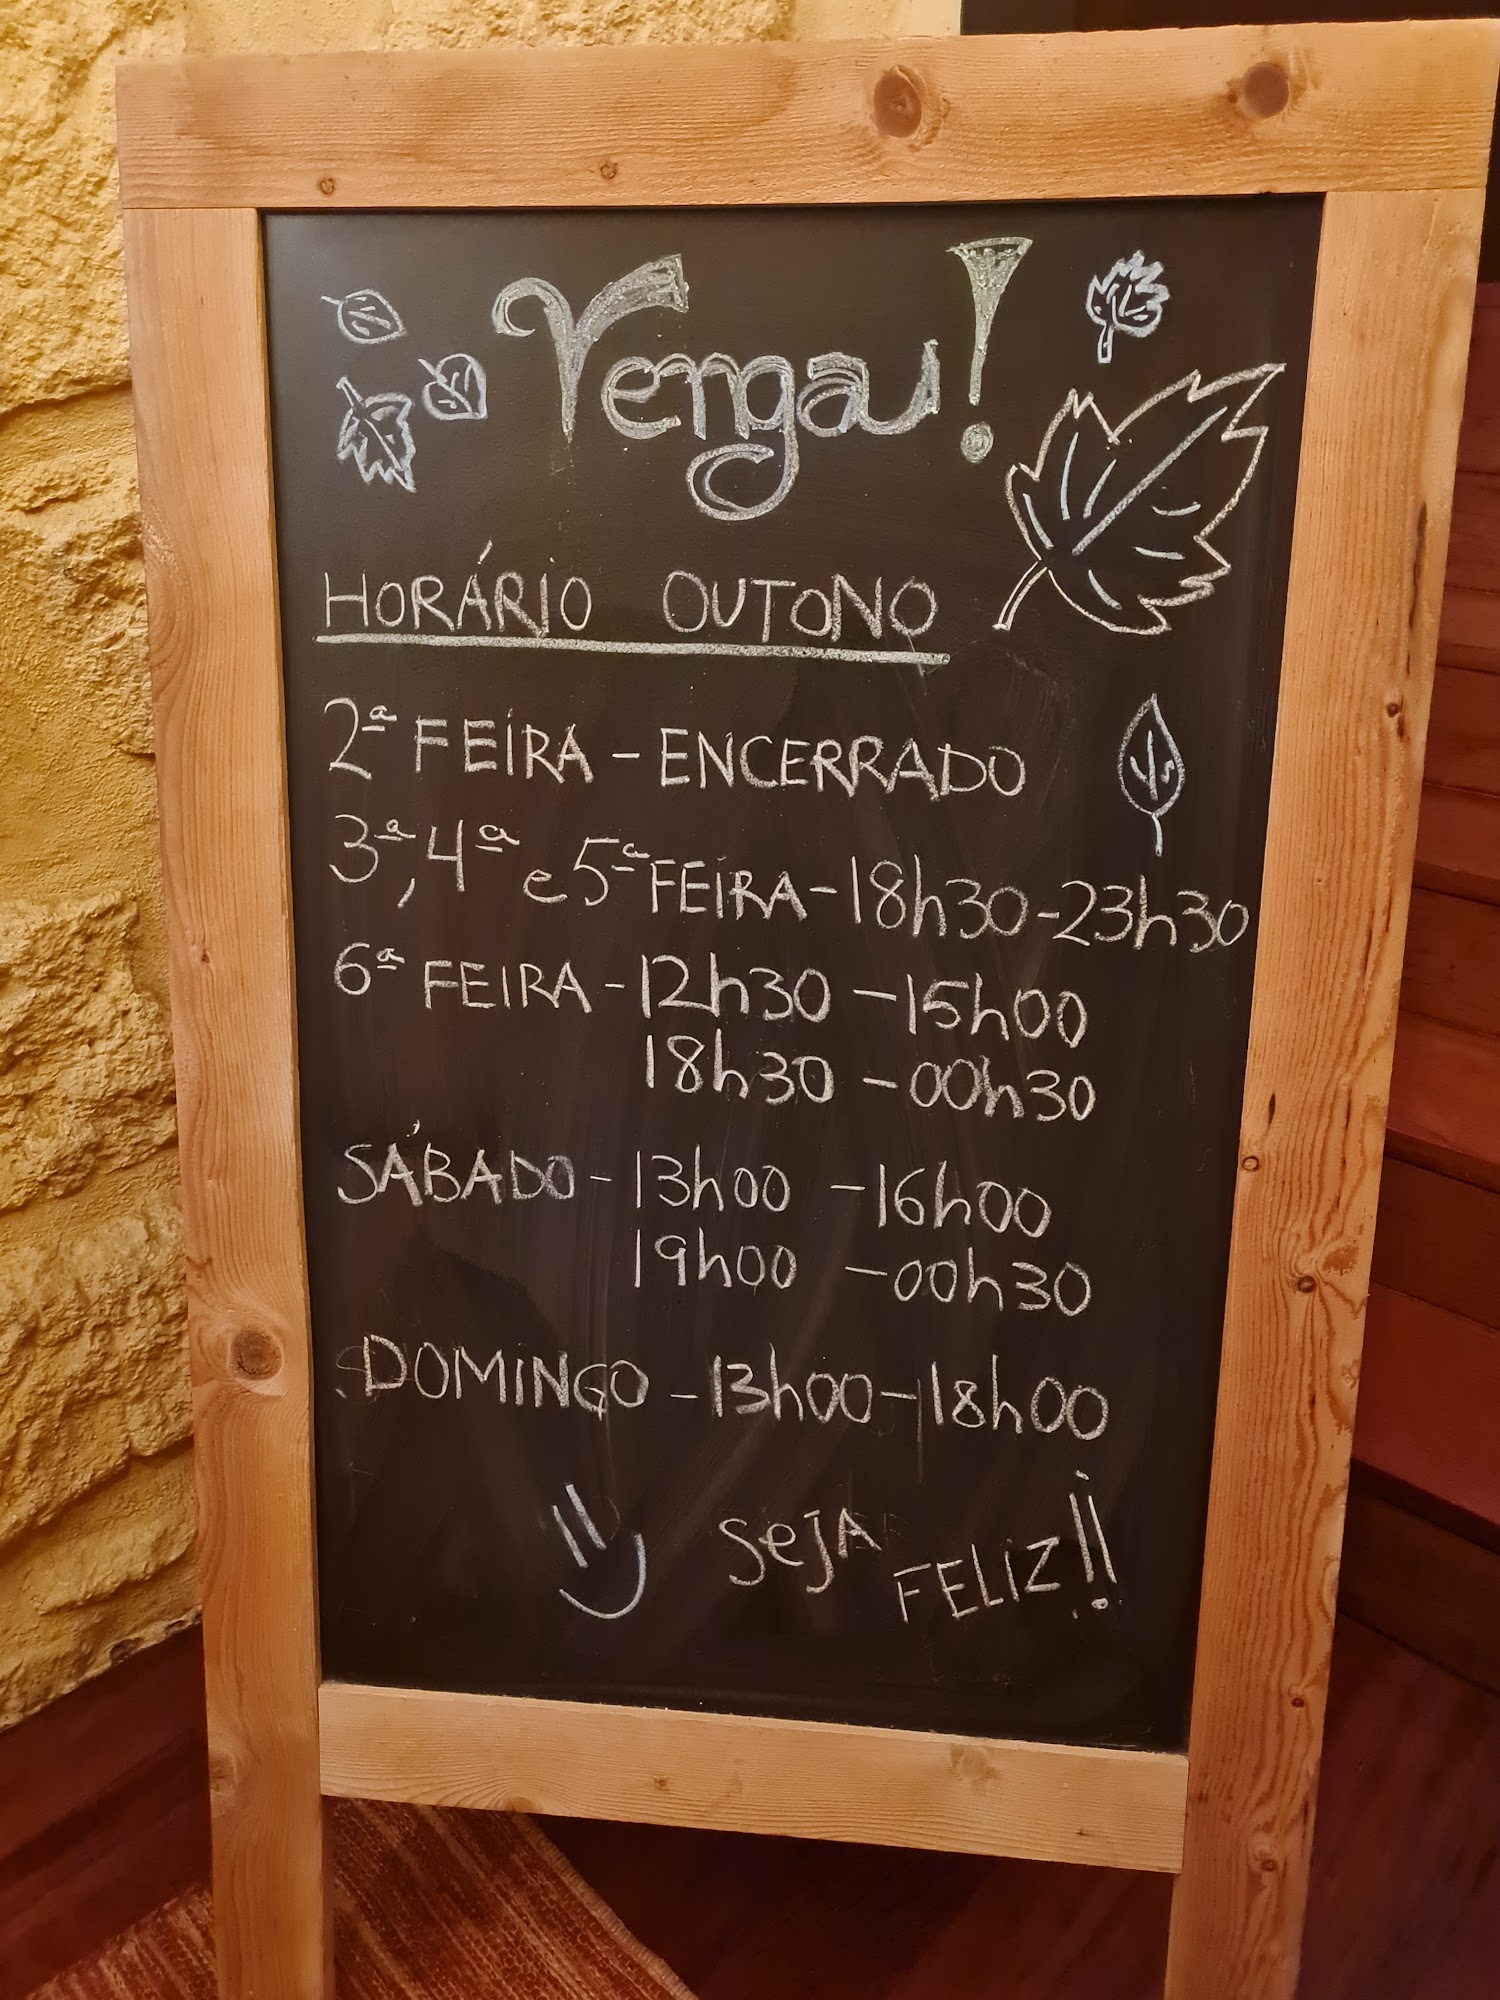 Venga!
HORÁRIO OUTONO
2ª FEIRA - ENCERRADO
3ª, 4ª e 5ª FEIRA - 18h30 - 23h30
6ª FEIRA - 12h30 - 15h00
18h30 - 00h30
SÁBADO - 13h00 - 16h00
19h00 - 00h30
DOMINGO - 13h00 - 18h00
SEJA FELIZ!!